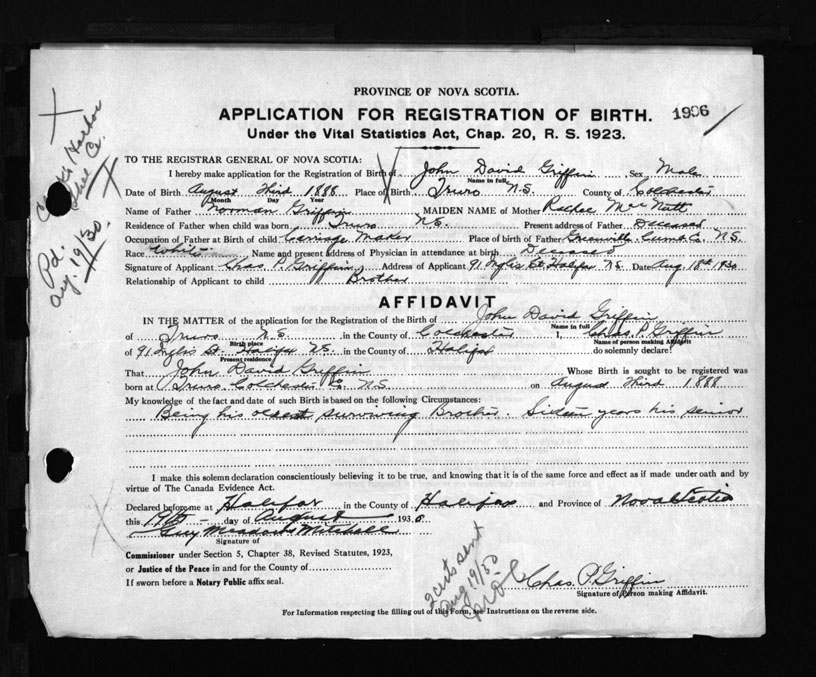 PROVINCE OF NOVA SCOTIA.
APPLICATION FOR REGISTRATION OF BIRTH. 1906
Under the Vital Statistics Act, Chap. 20, R. S. 1923.
TO THE REGISTRAR GENERAL OF NOVA SCOTIA:
I hereby make application for the Registration of Birth of John David Griffin Sex Male
Name in full
Date of Birth August Third 1888 Place of Birth Truro N.S. County of Colchester
Month Day Year
Name of Father Norman Griffin MAIDEN NAME of Mother MacNutt
Residence of Father when child was born Truro N.S. Present address of Father Deceased
Occupation of Father at Birth of child Carriage Maker Place of birth of Father Greenville Cumb Co. N.S.
Race White Name and present address of Physician in attendance at birth Deceased
Signature of Applicant Chas P. Griffin Address of Applicant 91 Inglis St Halifax N.S. Date Aug 18th 1930
Relationship of Applicant to child Brother
AFFIDAVIT
IN THE MATTER of the application for the Registration of Birth of John David Griffin
Name in full
of Truro N.S. in the County of Colchester I, Chas. P. Griffin
Birth place Name of person making Affidavit
of 91 Inglis St. Halifax N.S. in the County of Halifax do solemnly declare:
Present residence
That John David Griffin Whose Birth is sought to be registered was
born at Truro Colchester Co. N.S. on August Third 1888
My knowledge of the fact and date of such Birth is based on the following Circumstances:
Being his oldest surviving Brother. Sixteen years his senior
I make this solemn declaration conscientiously believing it to be true, and knowing that it is of the same force and effect as if made under oath and by
virtue of The Canada Evidence Act.
Declared before me at Halifax in the County of Halifax and Province of Nova Scotia
this 19th day of August 1930.
Guy Meadows Mitchell
Signature of
Commissioner under Section 5, Chapter 38, Revised Statutes, 1923,
or Justice of the Peace in and for the County of
If sworn before a Notary Public affix seal.
Chas. P. Griffin
Signature of Person making Affidavit.
For Information respecting the filling out of this Form, see Instructions on the reverse side.
Harbor
Shel Co.
Pd. Aug. 19/30
2 certs sent
Aug 19/30